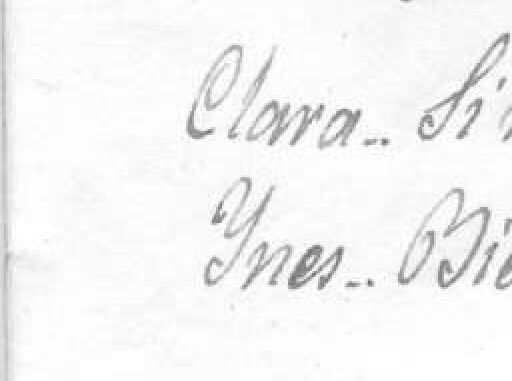 Clara.. Si
Ynes.. Bie